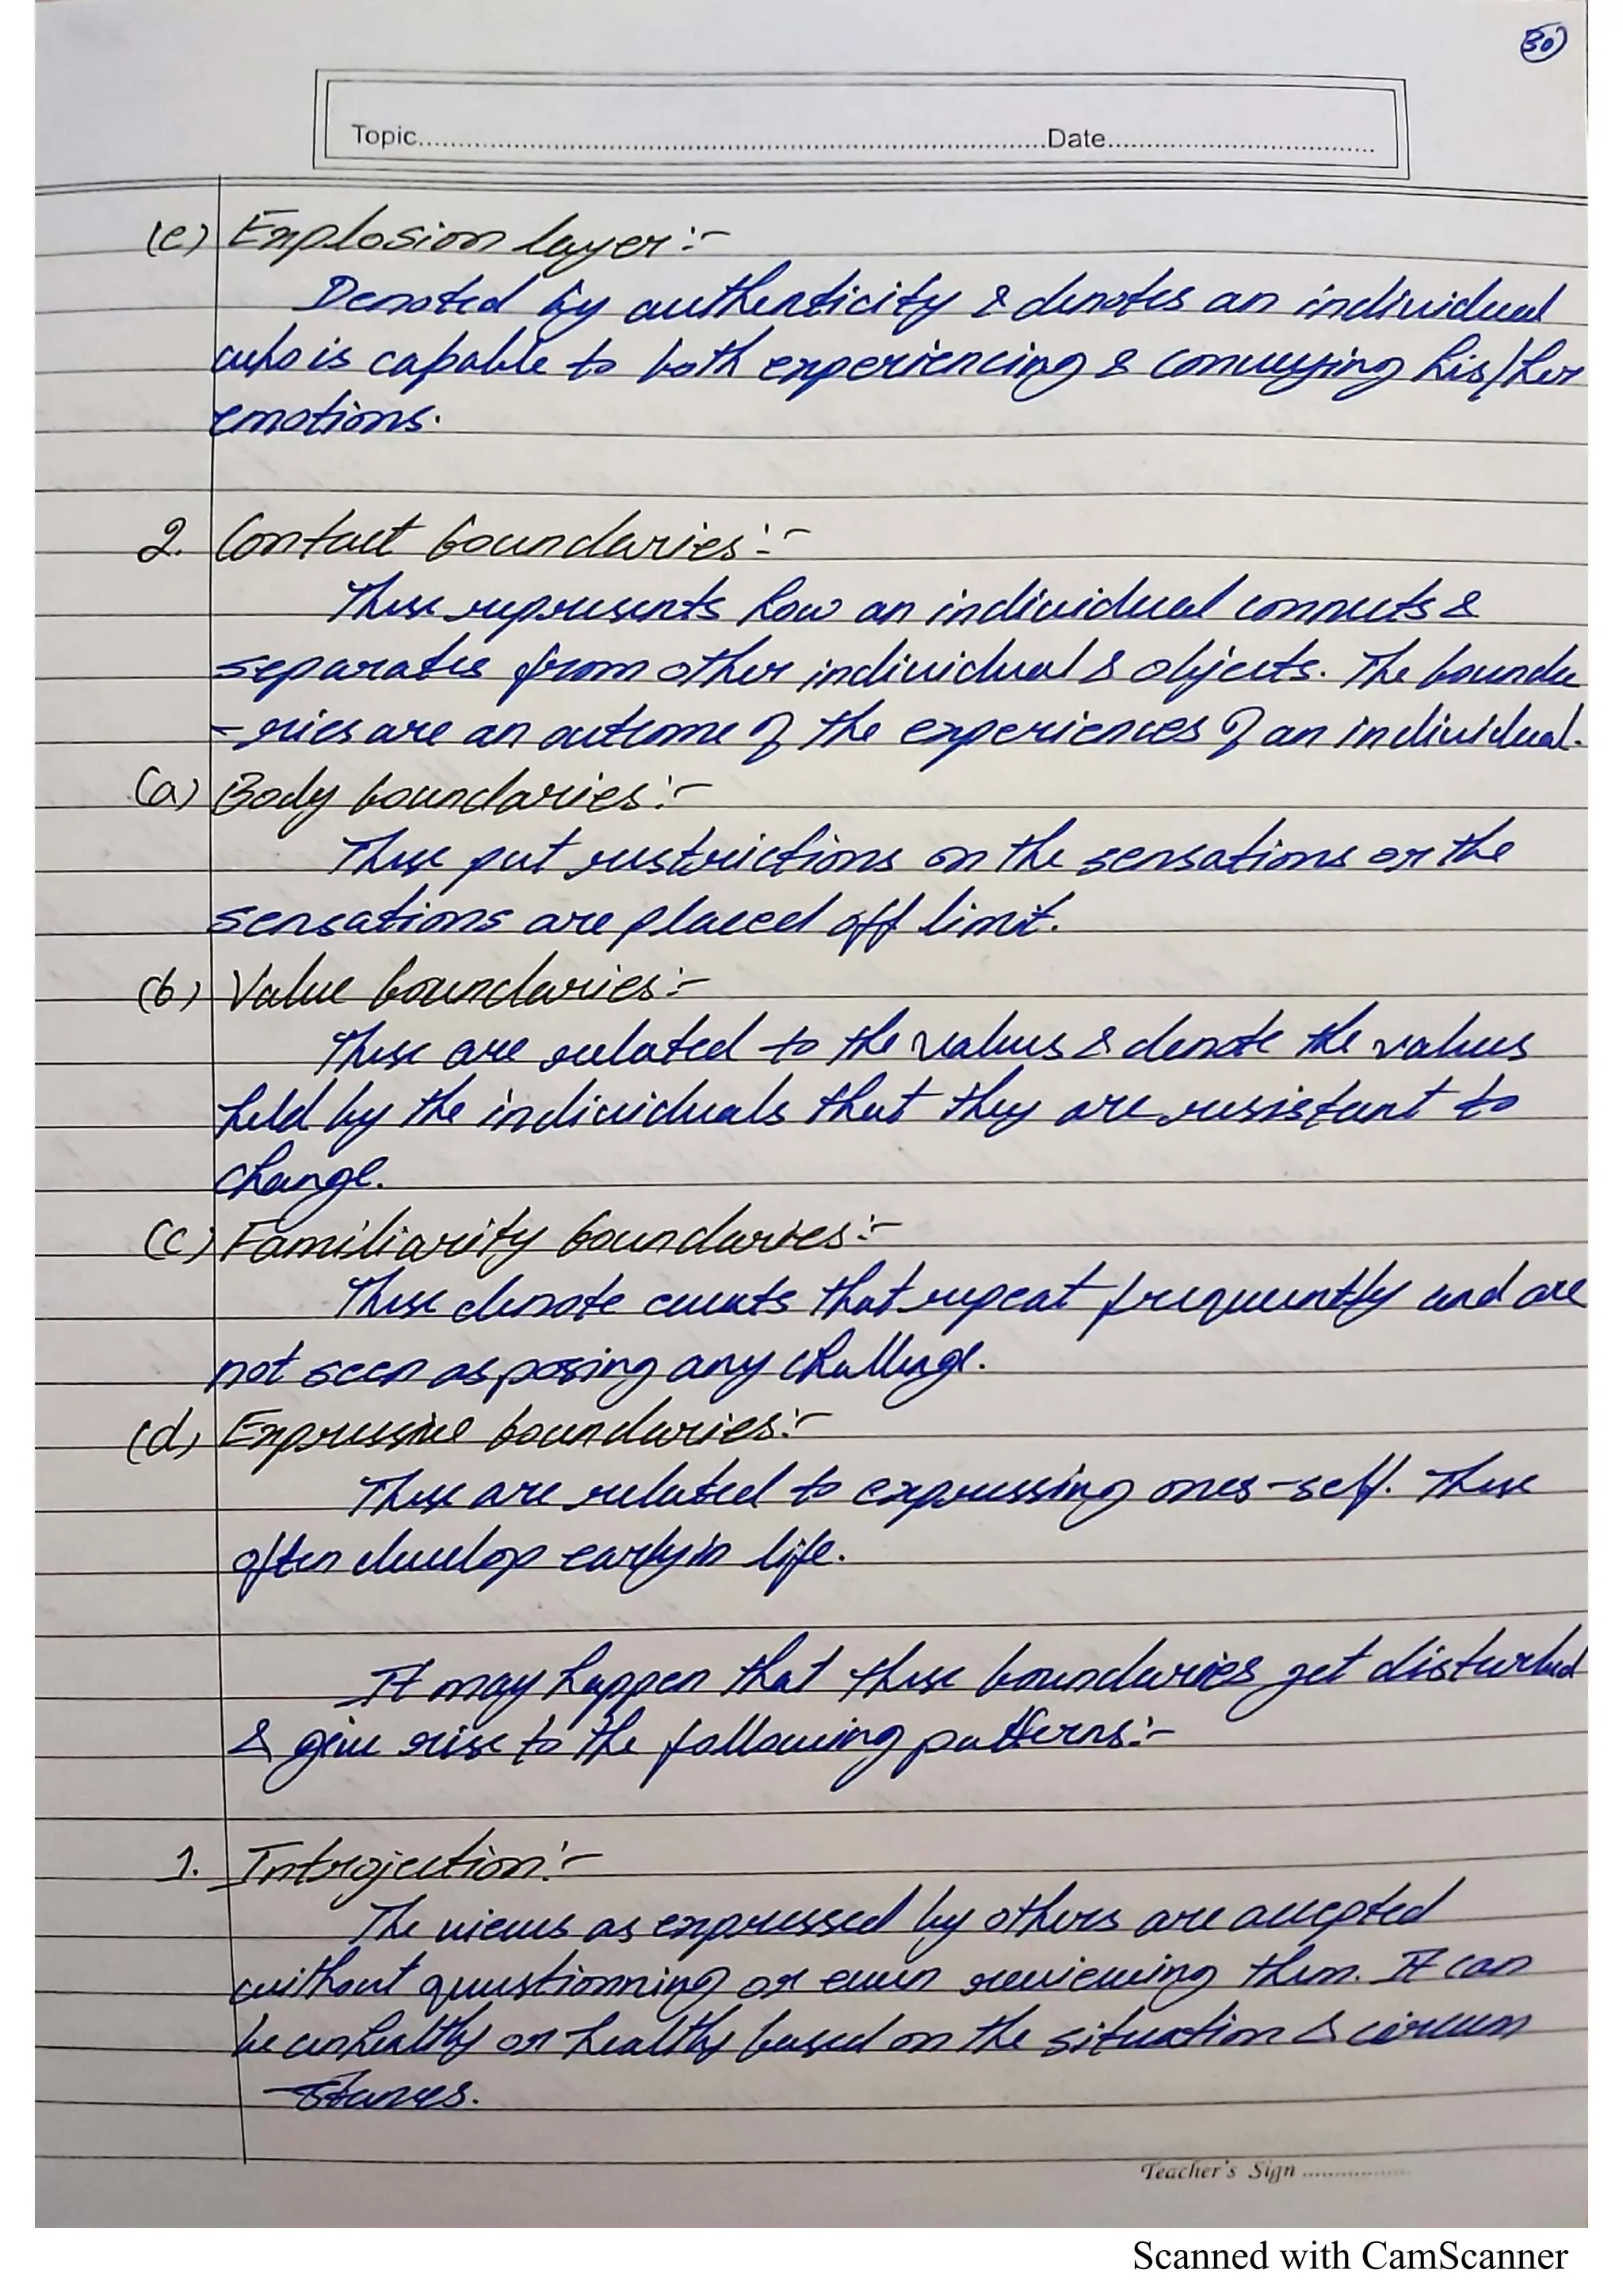 30
Topic..........Date..........
(e) Explosion layer:-
Denoted by authenticity & denotes an individual
who is capable to both experiencing & conveying his/her
emotions.
2. Contact boundaries:-
These represents how an individual connects &
separates from other individual & objects. The bounda
-ries are an outcome of the experiences of an individual.
(a) Body boundaries:-
These put restrictions on the sensations or the
sensations are placed off limit.
(b) Value boundaries:-
These are related to the values & denote the values
held by the individuals that they are resistant to
change.
(c) Familiarity boundaries:-
These denote events that repeat frequently and are
not seen as posing any challenge.
(d) Expressive boundaries:-
These are related to expressing ones-self. These
often develop early in life.
It may happen that these boundaries get disturbed
& give rise to the following patterns:-
1. Introjection:-
The views as expressed by others are accepted
without questionning or even reviewing them. It can
be unhealthy or healthy based on the situation & circum
-stances.
Teacher's Sign ..........
Scanned with CamScanner